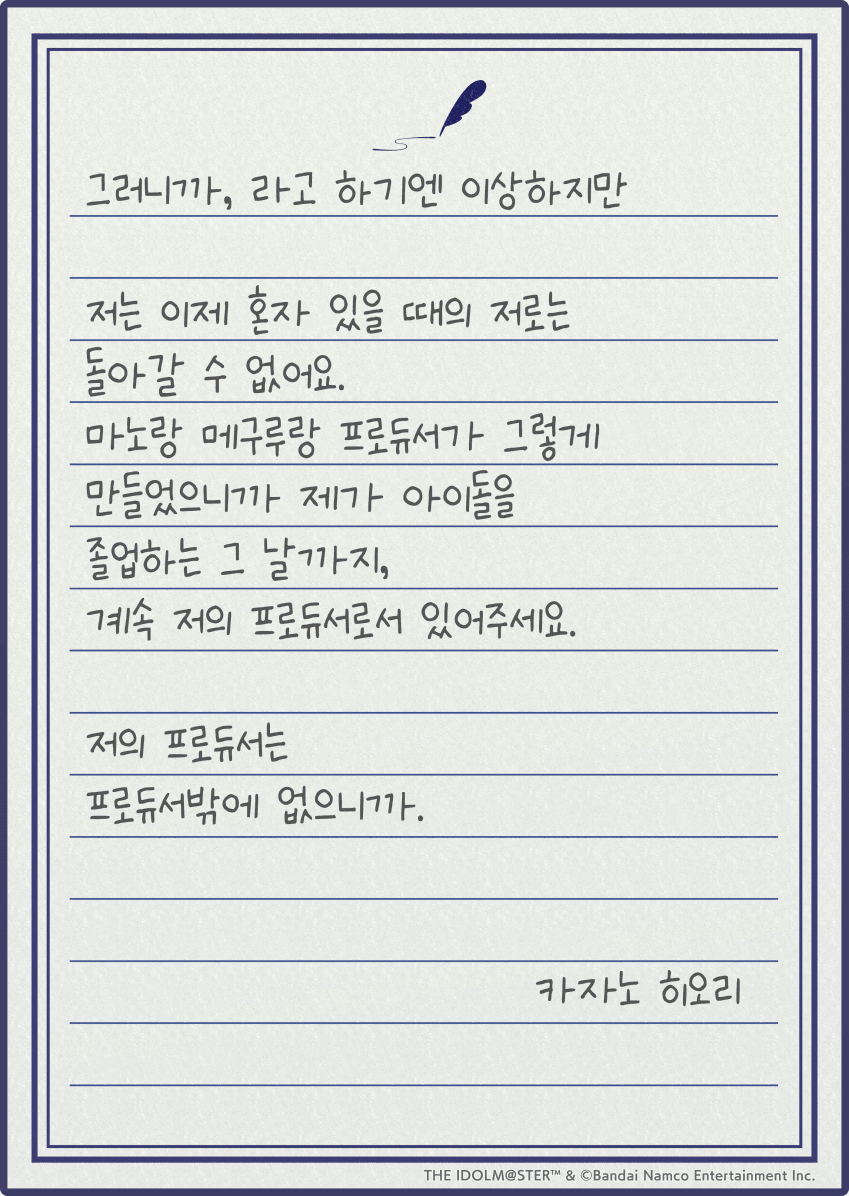 그러니까, 라고 하기엔 이상하지만
저는 이제 혼자 있을 때의 저로는
돌아갈 수 없어요.
마노랑 메구루랑 프로듀서가 그렇게
만들었으니까 제가 아이돌을
졸업하는 그 날까지,
계속 저의 프로듀서로서 있어주세요.
저의 프로듀서는
프로듀서밖에 없으니까.
카자노 히오리
THE IDOLM@STER™ & ©Bandai Namco Entertainment Inc.